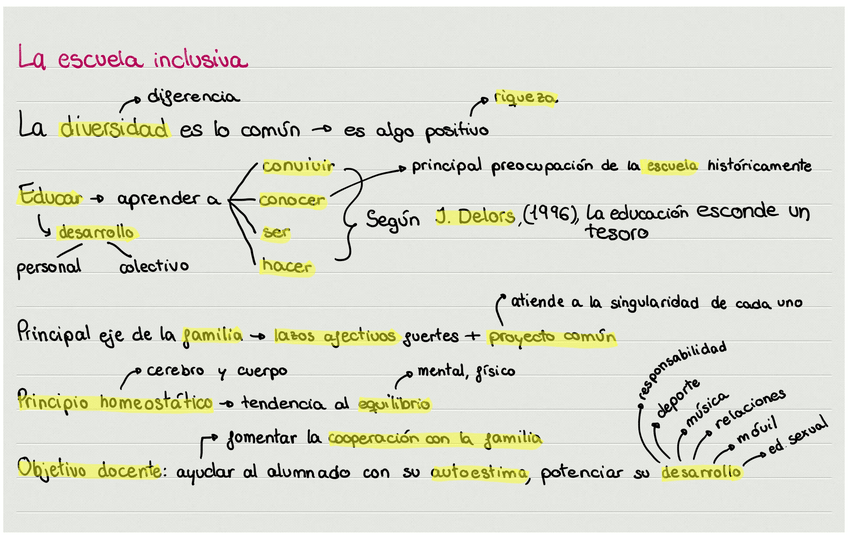 La escuela inclusiva
diferencia
riqueza.
La diversidad es lo común → es algo positivo
convivir
principal preocupación de la escuela históricamente
Educar → aprender a
conocer
Según J. Delors, (1996), La educación esconde un
tesoro
ser
desarrollo
hacer
personal colectivo
atiende a la singularidad de cada uno
Principal eje de la familia → lazos afectivos fuertes + proyecto común
cerebro y cuerpo
mental, físico
Principio homeostático → tendencia al equilibrio
fomentar la cooperación con la familia
responsabilidad
deporte
música
relaciones
móvil
ed. sexual
Objetivo docente: ayudar al alumnado con su autoestima, potenciar su desarrollo